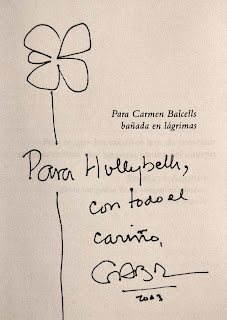 Para Carmen Balcells
bañada en lágrimas
Para Hollybell,
con todo el
cariño,
GABO
2003